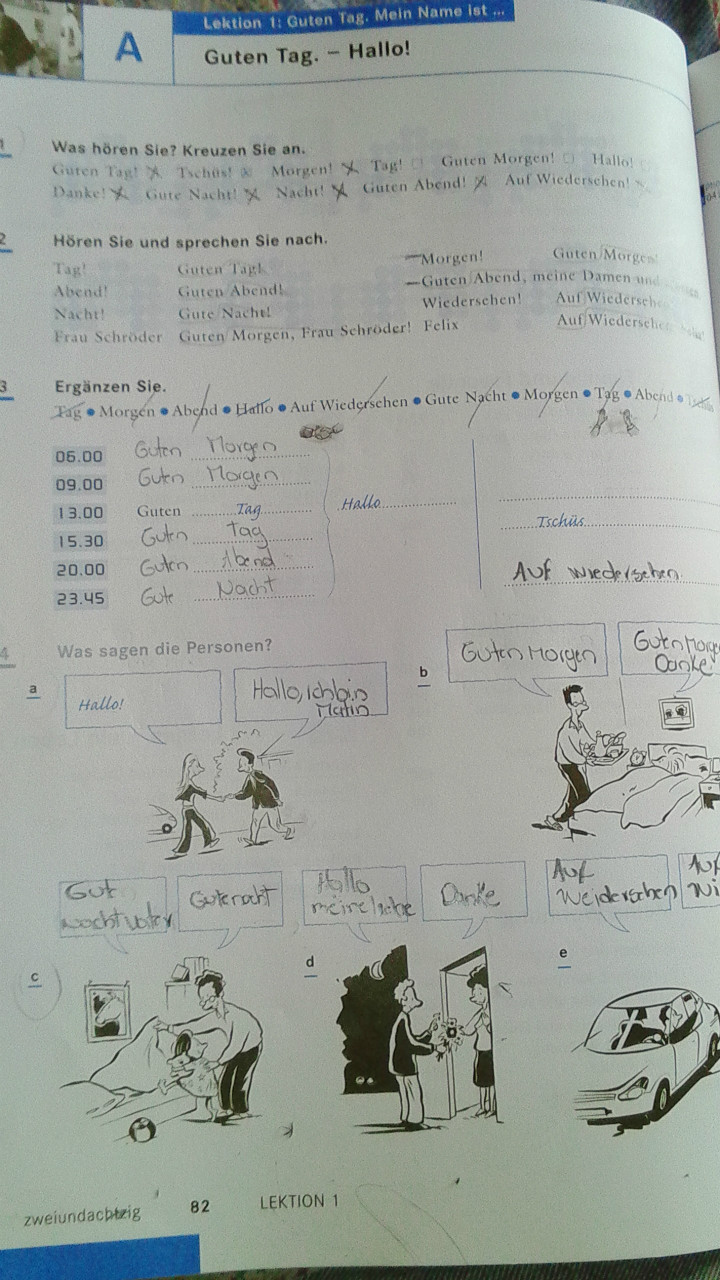 Lektion 1: Guten Tag. Mein Name ist ...
A
Guten Tag. – Hallo!
1
Was hören Sie? Kreuzen Sie an.
Guten Tag! Tschüs! Morgen! Tag! Guten Morgen! Hallo!
Danke! Gute Nacht! Nacht! Guten Abend! Auf Wiedersehen!
2
Hören Sie und sprechen Sie nach.
Tag! Guten Tag! Morgen! Guten Morgen!
Abend! Guten Abend! Guten Abend, meine Damen und
Nacht! Gute Nacht! Wiedersehen! Auf
Frau Schröder Guten Morgen, Frau Schröder! Felix Auf
3
Ergänzen Sie.
Tag • Morgen • Abend • Hallo • Auf Wiedersehen • Gute Nacht • Morgen • Tag • Abend •
06.00 Guten Morgen
09.00 Guten Morgen
13.00 Guten Tag Hallo
15.30 Guten Tag Tschüs
20.00 Guten Abend Auf wiedersehen
23.45 Gute Nacht
4
Was sagen die Personen?
a
Hallo!
Hallo, ich bin
b
Guten Morgen
Danke
c
Gut
Gute nacht
d
Hallo
meine liebe
Danke
e
Auf
Weidersehen
Auf
zweiundachtzig 82 LEKTION 1